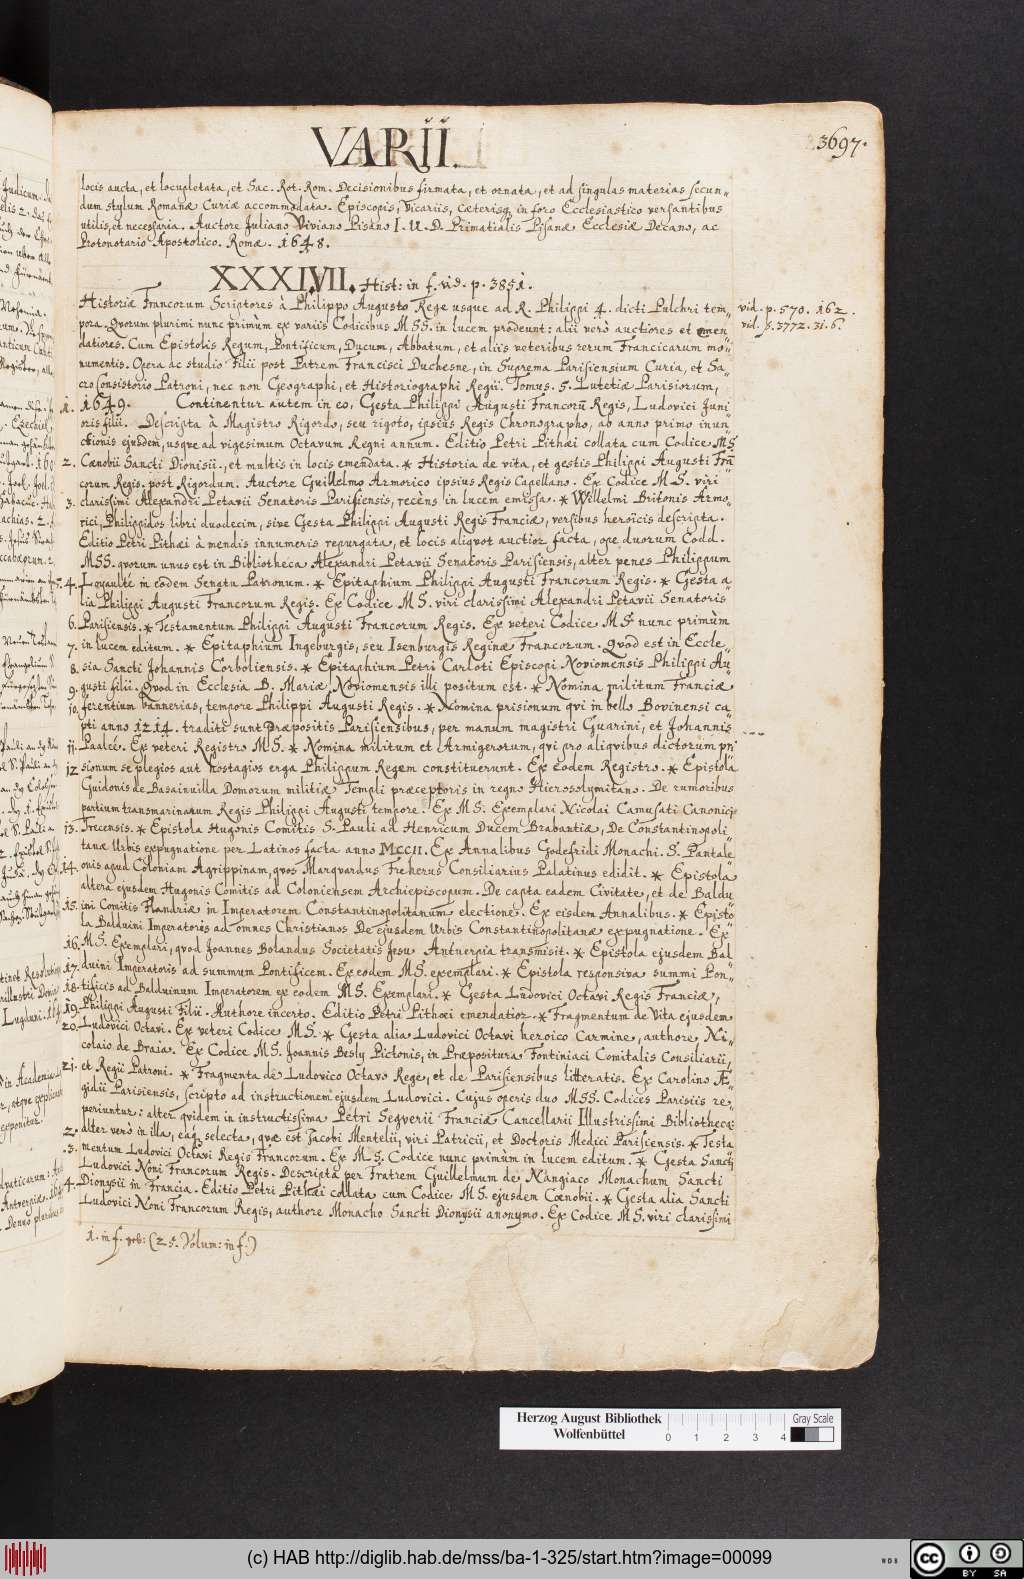 VARII.
3697.
locis aucta, et locupletata, et Sac. Rot. Rom. Decisionibus firmata, et ornata, et ad singulas materias secun=
dum stylum Romanæ Curiæ accommodata. Episcopis, Vicariis, cæterisq, in foro Ecclesiastico versantibus
utilis, et necessaria. Auctore Juliano Viviano Pisano I. U. D. Primatialis Pisanæ Ecclesiæ Decano, ac
Protonotario Apostolico. Romæ. 1648.
XXXIVII. Hist: in f. vid. p. 3851.
Historiæ Francorum Scriptores à Philippo Augusto Rege usque ad R. Philippi 4. dicti Pulchri tem=
vid. p. 570. 162.
pora. Qvorum plurimi nunc primùm ex variis Codicibus MSS. in lucem prodeunt: alii verò auctiores et emen=
vid. p. 3772. 31. 6.
datiores. Cum Epistolis Regum, Pontificum, Ducum, Abbatum, et aliis veteribus rerum Francicarum mo=
numentis. Opera ac studio Filii post Patrem Francisci Duchesne, in Suprema Parisiensium Curia, et Sa=
cro Consistorio Patroni, nec non Geographi, et Historiographi Regii. Tomus. 5. Lutetiæ Parisiorum,
1. 1649. Continentur autem in eo, Gesta Philippi Augusti Francorū Regis, Ludovici Juni
oris filii. Descripta à Magistro Rigordo, seu rigoto, ipsius Regis Chronographo, ab anno primo inun
ctionis ejusdem, usque ad vigesimum Octavum Regni annum. Editio Petri Pithæi collata cum Codice MS
2. Cænobii Sancti Dionisii., et multis in locis emendata. * Historia de vita, et gestis Philippi Augusti Frā
corum Regis. post Rigordum. Auctore Guillelmo Armorico ipsius Regis Capellano. Ex Codice MS. viri
3. clarissimi Alexandri Petavii Senatoris Parisiensis, recèns in lucem emissa. * Willelmi Britonis Armo=
rici, Philippidos libri duodecim, sive Gesta Philippi Augusti Regis Franciæ, versibus heroicis descripta.
Editio Petri Pithæi à mendis innumeris repurgata, et locis aliqvot auctior facta, ope duorum Codd.
MSS. qvorum unus est in Bibliotheca Alexandri Petavii Senatoris Parisiensis, alter penes Philippum
5. 4. Loyaulté in eodem Senatu Patronum. * Epitaphium Philippi Augusti Francorum Regis. * Gesta a
lia Philippi Augusti Francorum Regis. Ex Codice MS. viri clarissimi Alexandri Petavii Senatoris
6. Parisiensis. * Testamentum Philippi Augusti Francorum Regis. Ex veteri Codice MS nunc primùm
7. in lucem editum. * Epitaphium Ingeburgis, seu Isenburgis Reginæ Francorum. Qvod est in Eccle=
8. sia Sancti Johannis Corboliensis. * Epitaphium Petri Carloti Episcopi Noviomensis Philippi Au=
9. gusti filii. Qvod in Ecclesia B. Mariæ Noviomensis illi positum est. * Nomina militum Franciæ
10. ferentium bannerias, tempore Philippi Augusti Regis. * Nomina prisionum qvi in bello Bovinensi ca=
pti anno 1214. traditi sunt Præpositis Parisiensibus, per manum magistri Guarini, et Johannis
11. Paaleé. Ex veteri Registro MS. * Nomina militum et Armigerorum, qvi pro aliqvibus dictorum pri
12 sionum se plegios aut hostagios erga Philippum Regem constituerunt. Ex eodem Registro. * Epistola
Guidonis de Basainvilla Domorum militiæ Templi præceptoris in regno Hierosolymitano. De rumoribus
partium transmarinarum Regis Philippi Augusti tempore. Ex MS. Exemplari Nicolai Camusati Canonici
13. Trecensis. * Epistola Hugonis Comitis S. Pauli ad Henricum Ducem Brabantiæ, De Constantinopoli=
tanæ Urbis expugnatione per Latinos facta anno MCCII. Ex Annalibus Godefridi Monachi. S. Pantale
14. onis apud Coloniam Agrippinam, qvos Marqvardus Freherus Consiliarius Palatinus edidit. * Epistola
altera ejusdem Hugonis Comitis ad Coloniensem Archiepiscopum. De capta eadem Civitate, et de Baldu
15. ini Comitis Flandriæ in Imperatorem Constantinopolitanum electione. Ex eisdem Annalibus. * Episto
la Balduini Imperatoris ad omnes Christianos De ejusdem Urbis Constantinopolitanæ expugnatione. Ex=
16. MS. Exemplari, qvod Joannes Bolandus Societatis Jesu Antuerpia transmisit. * Epistola ejusdem Bal
17. duini Imperatoris ad summum Pontificem. Ex eodem MS. exemplari. * Epistola responsiva summi Pon=
18. tificis ad Balduinum Imperatorem ex eodem MS. Exemplari. * Gesta Ludovici Octavi Regis Franciæ,
19. Philippi Augusti Filii. Authore incerto. Editio Petri Pithœi emendatior. * Fragmentum de Vita ejusdem
20. Ludovici Octavi. Ex veteri Codice MS. * Gesta alia Ludovici Octavi heroico Carmine, authore Ni=
colaio de Braia. Ex Codice MS. Joannis Besly Pictonis, in Præpositura Fontiniaci Comitalis Consiliarii,
21. et Regii Patroni. * Fragmenta de Ludovico Octavo Rege, et de Parisiensibus litteratis. Ex Carolino Æ=
gidii Parisiensis, scripto ad instructionem ejusdem Ludovici. Cujus operis duo MSS. Codices Parisiis re=
periuntur: alter qvidem in instructissima Petri Segverii Franciæ Cancellarii Illustrissimi Bibliotheca:
2. alter verò in illa, eáq; selecta, qvæ est Jacobi Mentelii, viri Patricii, et Doctoris Medici Parisiensis. * Testa
.3. mentum Ludovici Octavi Regis Francorum. Ex MS. Codice nunc primùm in lucem editum. * Gesta Sancti
Ludovici Noni Francorum Regis. Descripta per Fratrem Guillelmum de Nangiaco Monachum Sancti
4. Dionysii in Francia. Editio Petri Pithæi collata cum Codice MS. ejusdem Cœnobii. * Gesta alia Sancti
Ludovici Noni Francorum Regis, authore Monacho Sancti Dionysii anonymo. Ex Codice MS. viri clarissimi
1. in f. geb: (25. Volum: in f.)
Herzog August Bibliothek
Wolfenbüttel
0 1 2 3 4
Gray Scale
(c) HAB http://diglib.hab.de/mss/ba-1-325/start.htm?image=00099
WDB
cc BY SA